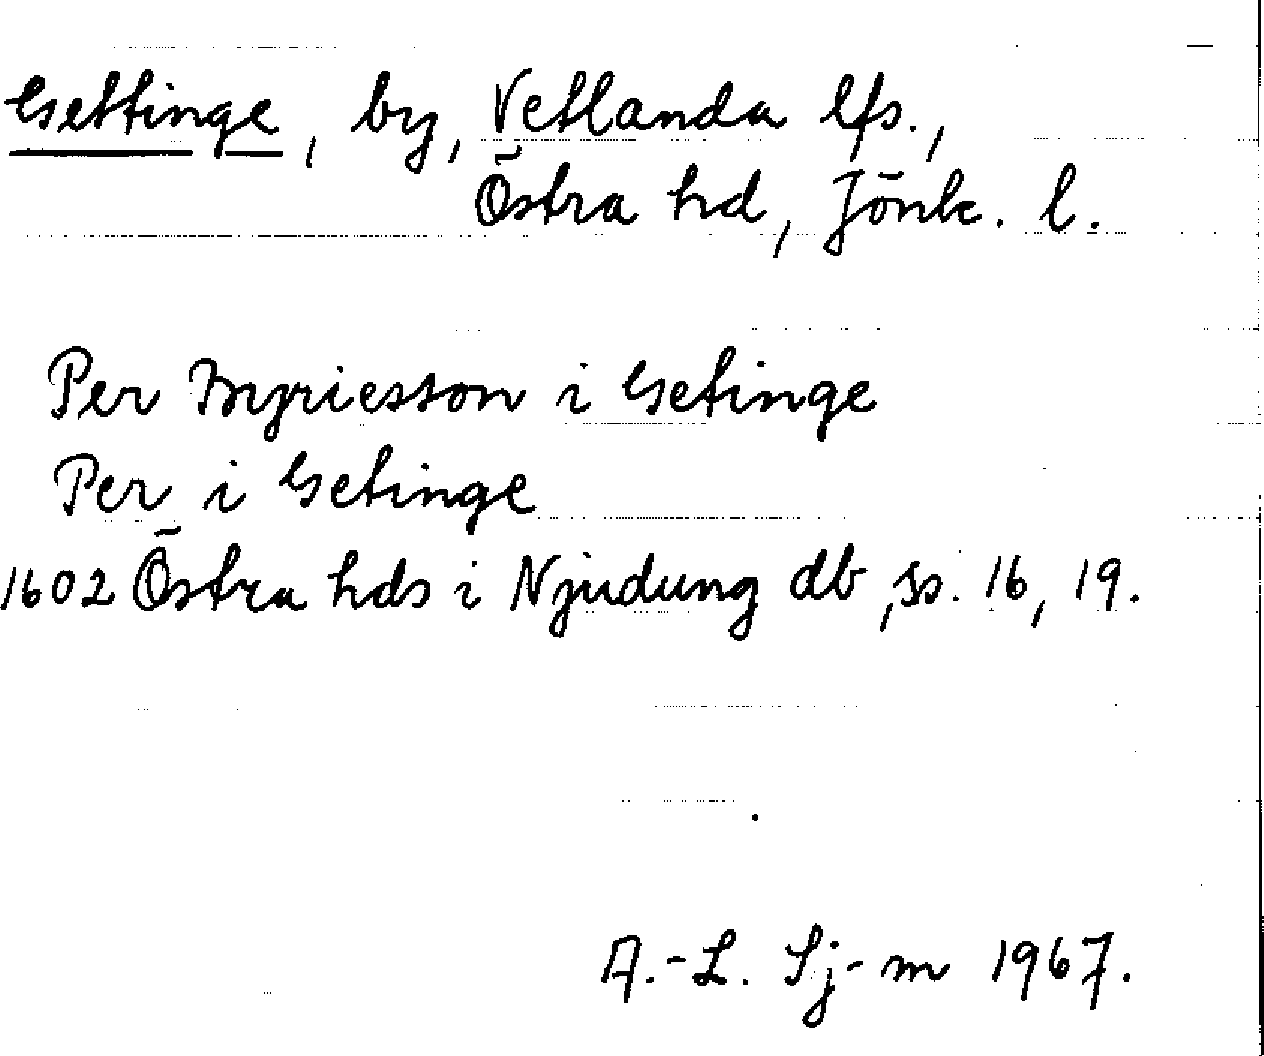 Gettinge, by, Vetlanda lfs.,
Östra hd, Jönk. l.
Per Bryriesson i Getinge
Per i Getinge
1602 Östra hds i Njudung db, ss. 16, 19.
A.-L. Sj-m 1967.